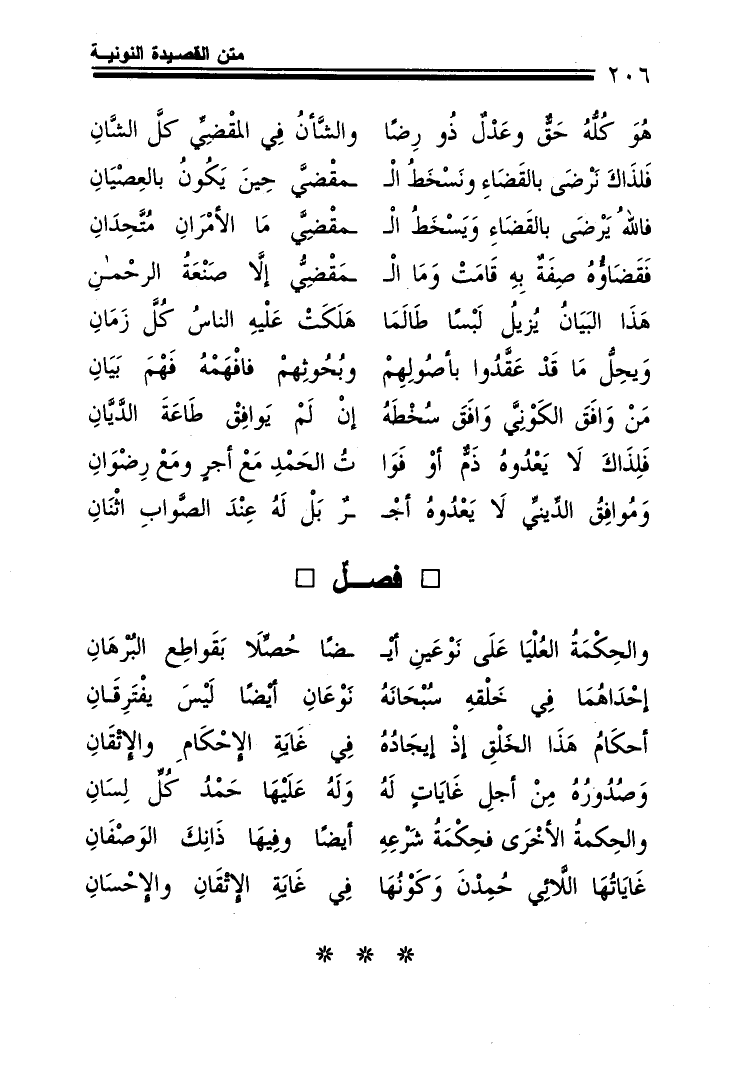 ٢٠٦ متن القصيدة النونية
هُوَ كُلُّهُ حَقٌّ وعَدْلٌ ذُو رِضًا والشَّأنُ فِي المَقْضِيِّ كلَّ الشَّانِ
فَلذَاكَ نَرْضَى بالقَضَاءِ ونَسْخَطُ الْـ ـمقْضيَّ حِينَ يَكُونُ بالعِصْيَانِ
فاللهُ يَرْضَى بالقَضَاءِ وَيَسْخَطُ الْـ ـمقْضِيَّ مَا الأمْرَانِ مُتَّحِدَانِ
فَقَضَاؤُهُ صِفَةٌ بِهِ قَامَتْ وَمَا الْـ ـمَقْضِيُّ إلَّا صَنْعَةُ الرحْمٰنِ
هَذَا البَيَانُ يُزيلُ لَبْسًا طَالَمَا هَلَكَتْ عَلَيْهِ الناسُ كُلَّ زَمَانِ
وَيحِلُّ مَا قَدْ عَقَّدُوا بأصُولِهِمْ وبُحُوثِهِمْ فافْهَمْهُ فَهْمَ بَيَانِ
مَنْ وَافَقَ الكَوْنِيَّ وَافَقَ سُخْطَهُ إنْ لَمْ يَوافِقْ طَاعَةَ الدَّيَّانِ
فَلِذَاكَ لَا يَعْدُوهُ ذَمٌّ أوْ فَوَا تُ الحَمْدِ مَعْ أجرٍ ومَعْ رِضْوَانِ
وَمُوافِقُ الدِّينيِّ لَا يَعْدُوهُ أجْـ ـرٌ بَلْ لَهُ عِنْدَ الصَّوابِ اثْنَانِ
□ فصـــلٌ □
والحِكْمَةُ العُلْيَا عَلَى نَوْعَينِ أيْـ ـضًا حُصِّلَا بَقَواطِعِ البُرْهَانِ
إحْدَاهُمَا فِي خَلْقهِ سُبْحَانَهُ نَوْعَانِ أيْضًا لَيْسَ يفْتَرِقَانِ
أحكَامُ هَذَا الخَلْقِ إذْ إيجَادُهُ فِي غَايَةِ الإحْكَامِ والإتْقَانِ
وَصُدُورُهُ مِنْ أجلِ غَايَاتٍ لَهُ وَلَهُ عَلَيْهَا حَمْدُ كُلِّ لِسَانِ
والحِكمةُ الأخْرَى فحِكْمَةُ شَرْعِهِ أيضًا وفِيهَا ذَانِكَ الوَصْفَانِ
غَايَاتُهَا اللَّائِي حُمِدْنَ وَكَوْنُهَا فِي غَايَةِ الإتْقَانِ والإحْسَانِ
* * *